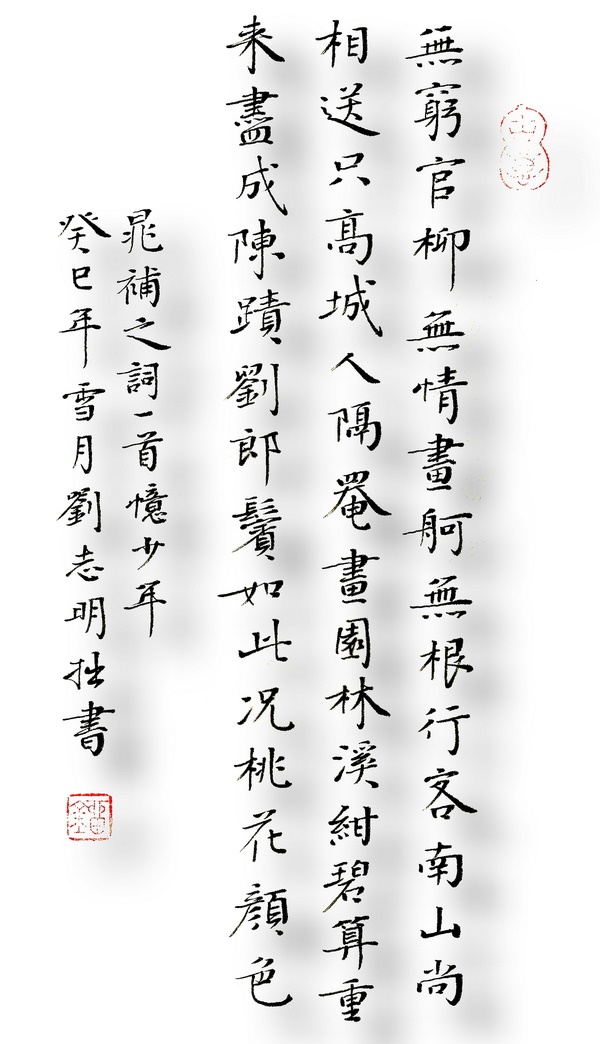 無窮官柳無情畫舸無根行客南山尚
相送只高城人隔罨畫園林溪紺碧算重
来盡成陳蹟劉郎鬢如此况桃花顔色
晁補之詞一首憶少年
癸巳年雪月劉志明拙書